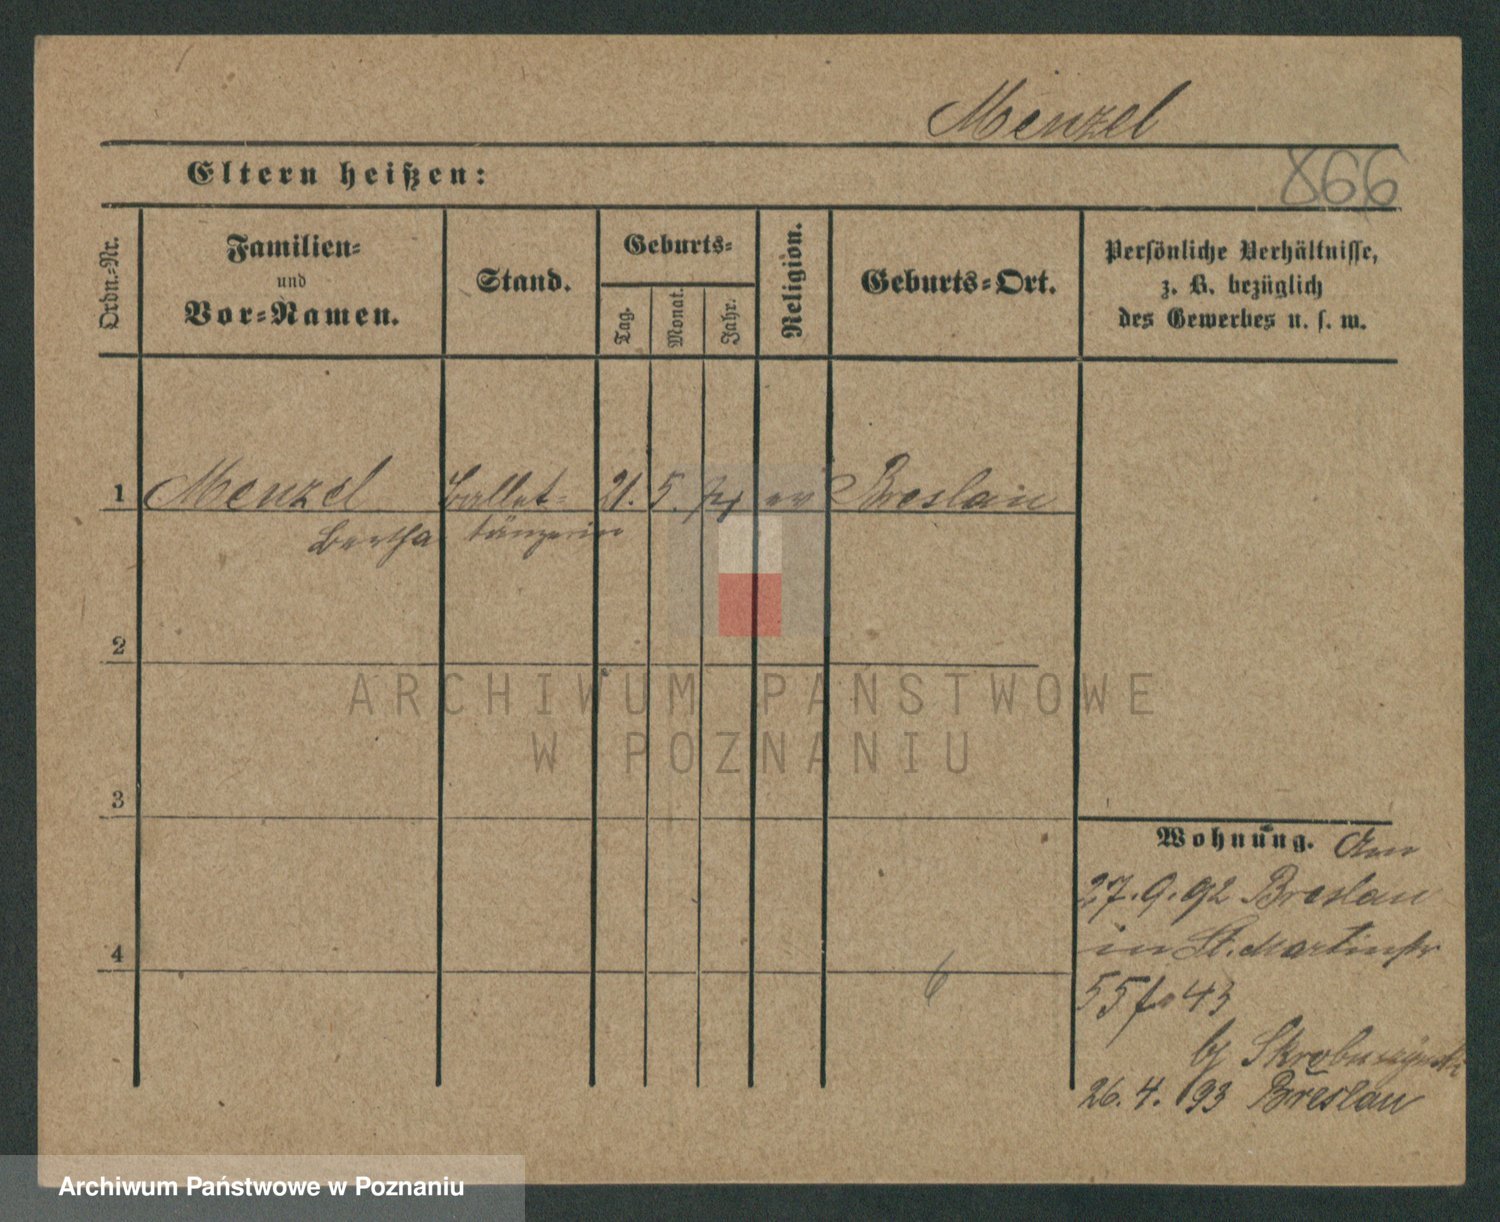 Menzel
Eltern heißen:
866
Ordn.-Nr.
Familien-
und
Vor-Namen.
Stand.
Geburts-
Tag.
Monat.
Jahr.
Religion.
Geburts-Ort.
Persönliche Verhältnisse,
z. B. bezüglich
des Gewerbes u. s. w.
1 Menzel Ballet- 21. 5. ev Breslau
Bertha tänzerin
2
3
4
6
Wohnung. Am
27.9.92 Breslau
in St. Martinstr
55 43
26. 4. 93 Breslau
ARCHIWUM PAŃSTWOWE
W POZNANIU
Archiwum Państwowe w Poznaniu